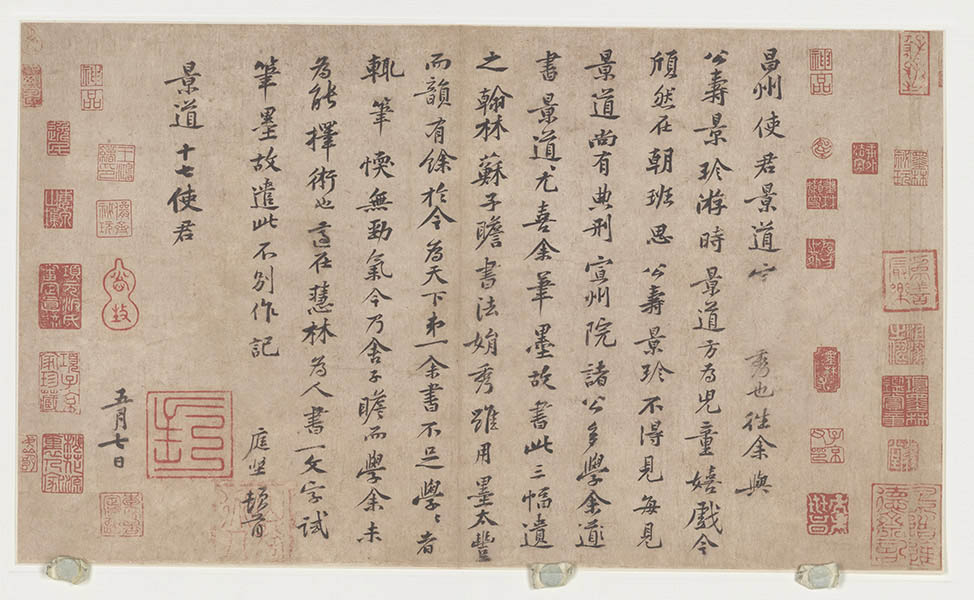 昌州使君景道宗秀也往余與
公壽景珍游時景道方為兒童嬉戲今
頎然在朝班思公壽景珍不得見每見
景道尚有典刑宣州院諸公多學余道
書景道尤喜余筆墨故書此三幅遺
之翰林蘇子瞻書法娟秀雖用墨太豐
而韻有餘於今為天下弟一余書不足學〻者
輒筆愞無勁氣今乃舍子瞻而學余未
為能擇術也適在慧林為人書一文字試
筆墨故遣此不別作記
庭堅頓首
景道十七使君
五月七日
神品
神品